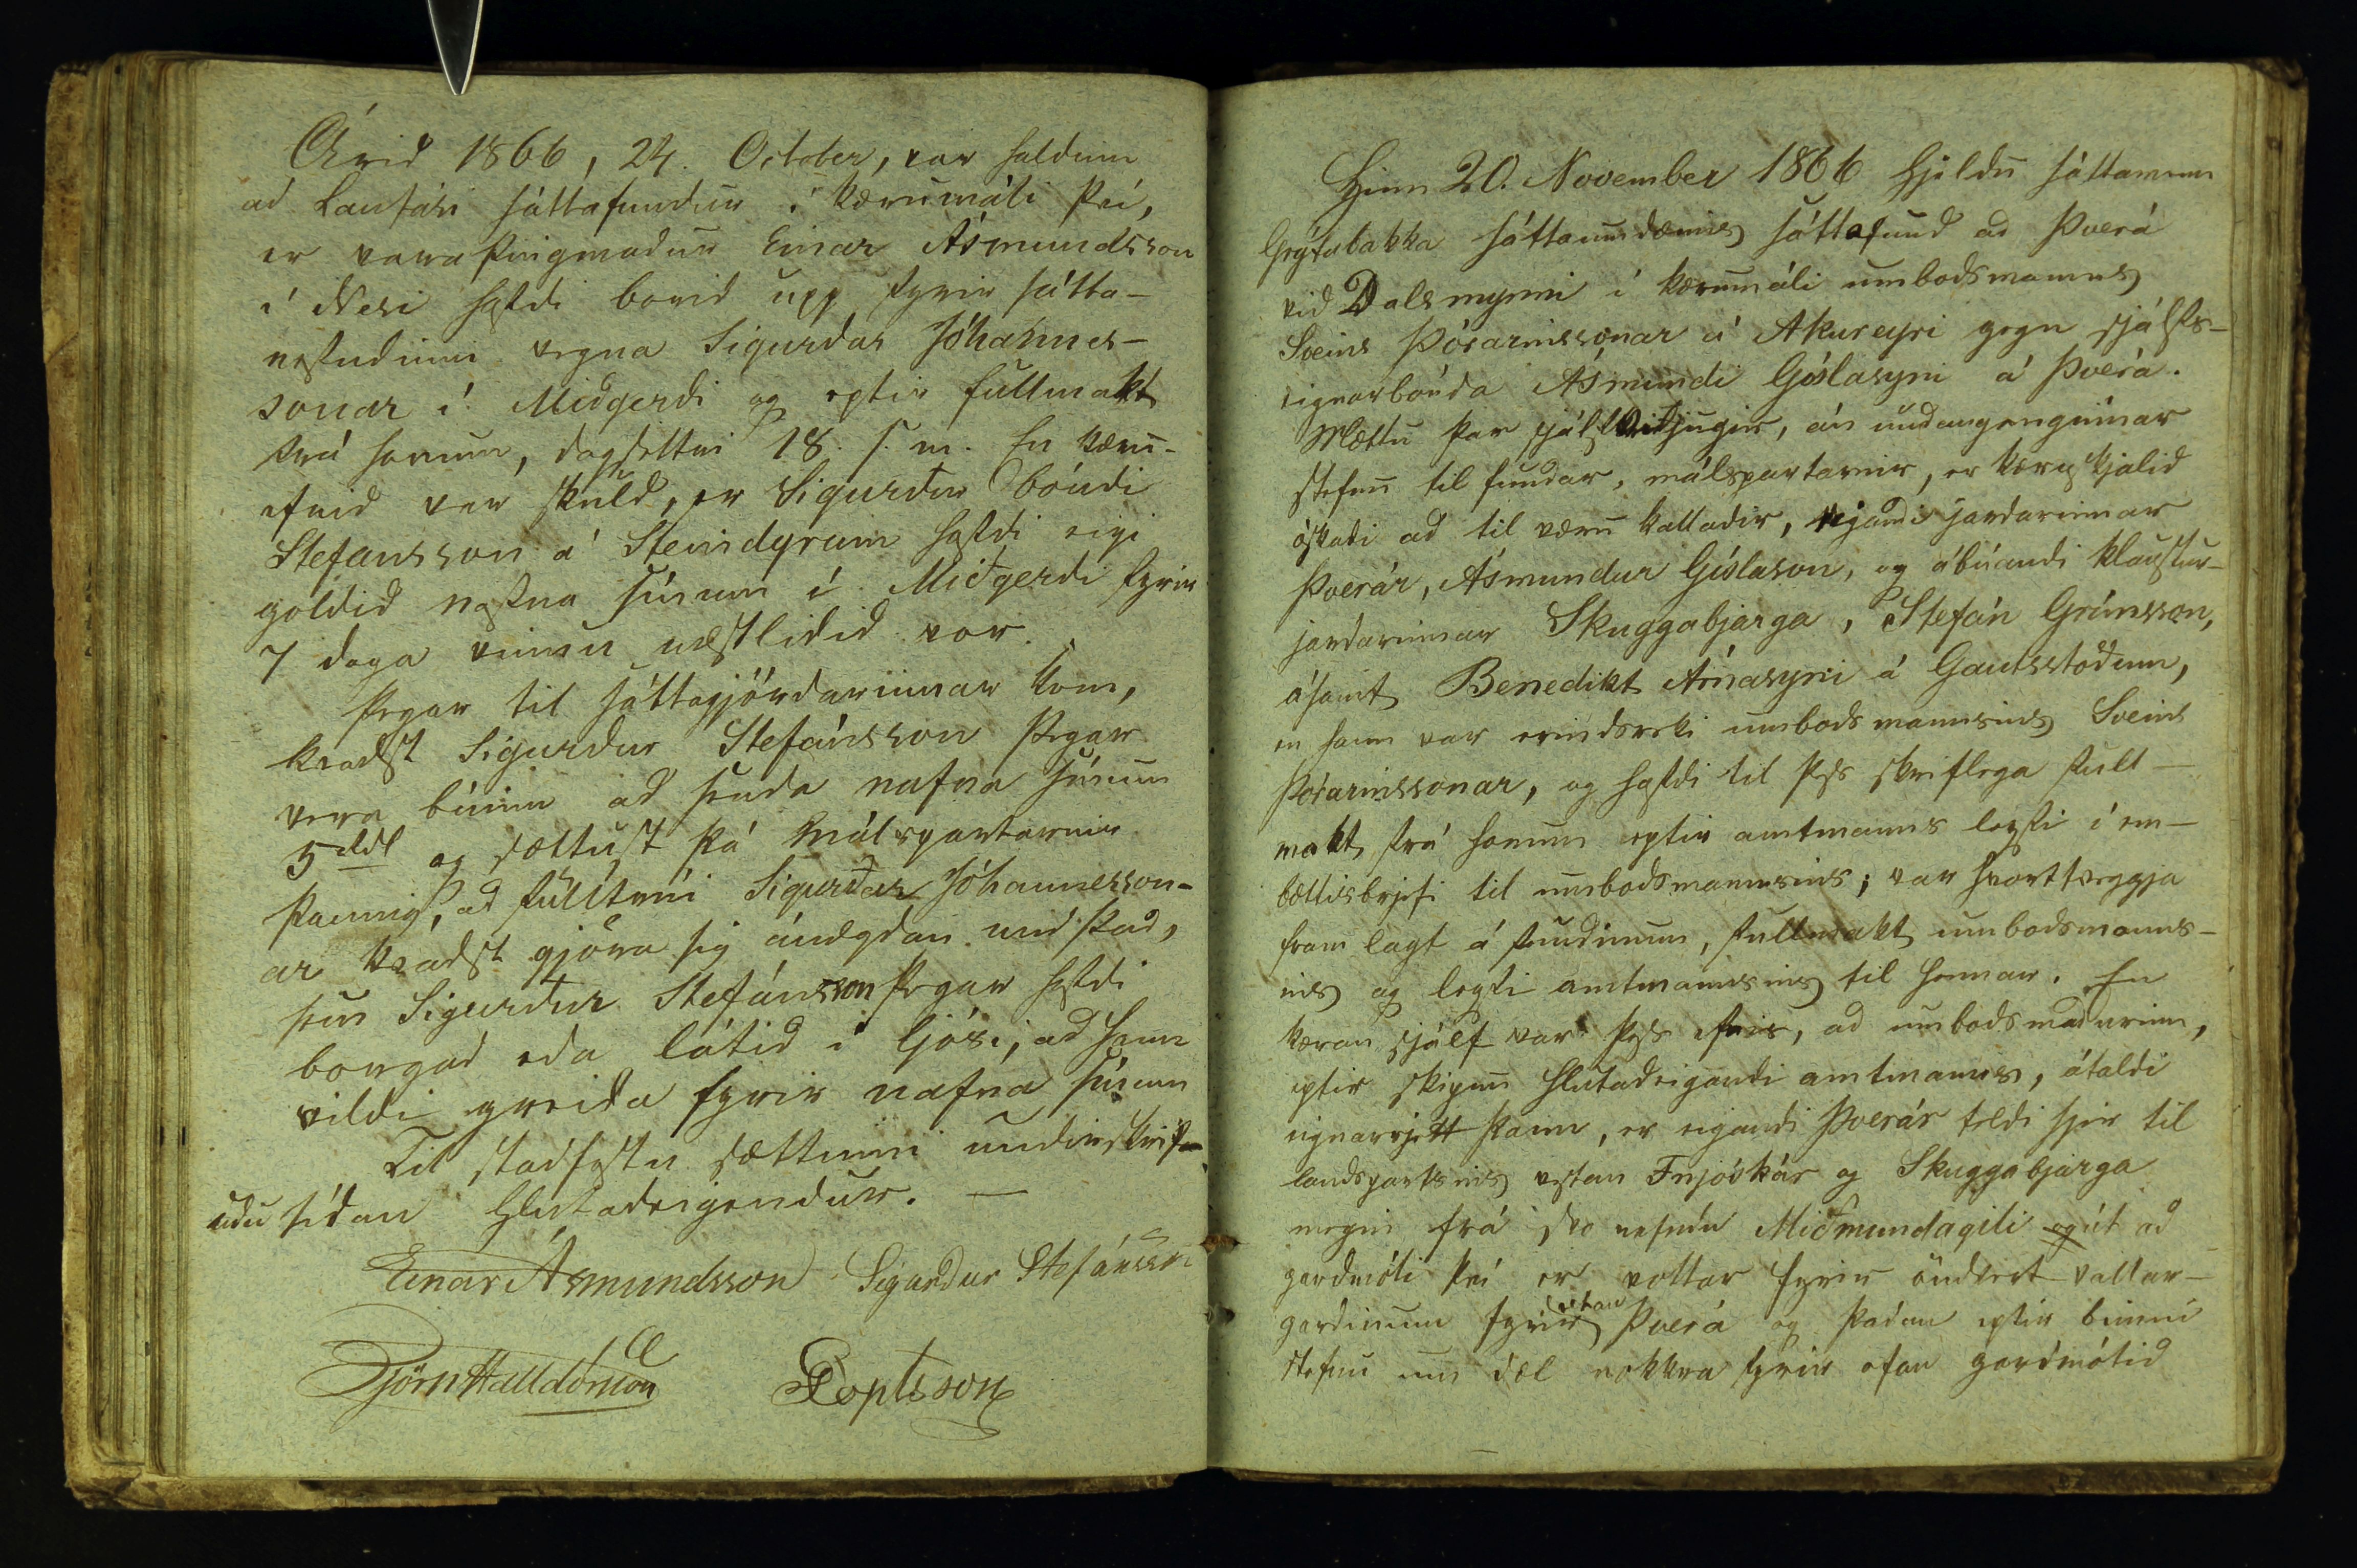 Árið 1866, 24. October, var haldinn
að Laufási sáttafundur í kærumáli því,
er varaþingmaður Einar Ásmundsson
í Nesi hafdi borið upp fyrir sátta-
nefndinni vegna Sigurðar Jóhannes-
sonar í Miðgerdi og eptir fullmakt
frá honum, dagsettri 18. s. m. En kæru-
efnið var skuld, er Sigurður bóndi
Stefansson á Steindyrum hafdi eigi
goldið nafna sínum í Miðgerdi fyrir
7 daga vinnu næstliðið vor.
Þegar til sáttagjörðarinnar kom,
kvadst Sigurður Stefánsson þegar
vera búinn að senda nafna sínum
5 rdl og sættust þá málspartarnir
þannig, að fulltrúi Sigurðar Jóhannesson-
ar kvadst gjöra sig ánægdan með það,
sem Sigurður Stefánsson þegar hafdi
borgað eða látið í ljósi, að hann
vildi greiða fyrir nafna sínum
Til staðfestu sættinni undirskrif-
uðu síðan hlutaðeigendur. —
Einar Ásmundsson Sigurður Stefánsson
Björn Halldórsson
Loptsson
Hinn 20. November 1866 hjeldu sáttamenn
Grýtubakka sáttaumdæmis sáttafund að Þverá
við Dalsmynni í kærumáli umboðsmanns
Sveins Þórarinssonar á Akureyri gegn sjálfs-
eignarbónda Ásmundi Gíslasyni á Þverá.
Mættu þar sjálfkrafðir, án undangenginnar
stefnu til fundar, málspartarnir, er kæruskjalið
óskadi að til væru kallaðir, eigandi jarðarinnar
Þverár, Ásmundur Gíslason, og ábúandi klaustur-
jarðarinnar Skuggabjarga, Stefán Grímsson,
ásamt Benedikt Árnasyni á Gautsstöðum,
en hann var erindsreki umboðsmannsins Sveins
Þórarinssonar, og hafdi til þess skriflega full-
makt frá honum eptir amtmanns leyfi í em-
bættisbrjefi til umboðsmannsins; var hvorttveggja
fram lagt á fundinum, fullmakt umboðsmanns-
ins og leyfi amtmannsins til hennar. En
kæran sjálf var þess efnis, að umboðsmaðurinn,
eptir skipun hlutaðeigandi amtmanns, átaldi
eignarrjett þann, er eigandi Þverár teldi sjer til
landspartsins vestan Fnjóskár og Skuggabjarga
megin frá svo nefndu Miðmundagili og út að
garðmóti því er vottar fyrir öndvert vallar-
garðinum fyrir utan Þverá og þaðan eptir beinni
stefnu um dæl nokkra fyrir ofan garðmótið